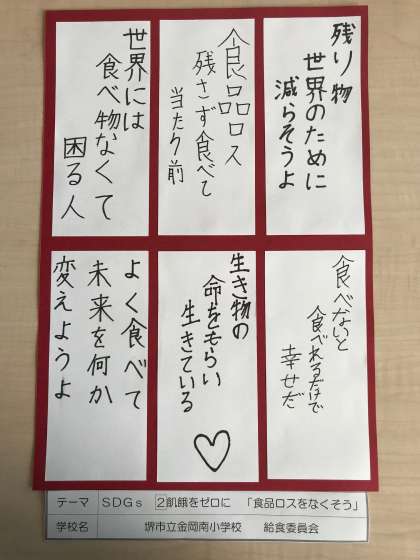 残り物
世界のために
減らそうよ
食品ロス
残さず食べて
当たり前
世界には
食べ物なくて
困る人
食べないと
食べれるだけで
幸せだ
生き物の
命をもらい
生きている
よく食べて
未来を何か
変えようよ
テーマ SDGs 2飢餓をゼロに 「食品ロスをなくそう」
学校名 堺市立金岡南小学校 給食委員会